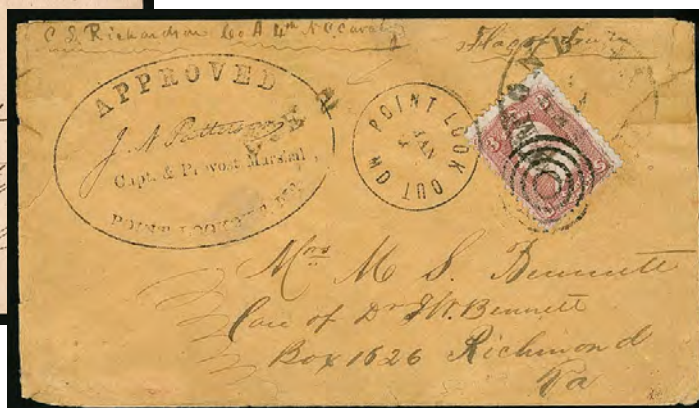 C S Richardson Co A 4th N.C. Cavalry
Flag of Truce
APPROVED
J. N. Patterson
Capt. & Provost Marshal
POINT LOOKOUT, Md.
POINT LOOK OUT MD
JAN
3
Mrs M S. Bennett
Care of Dr J W. Bennett
Box 1626 Richmond
Va